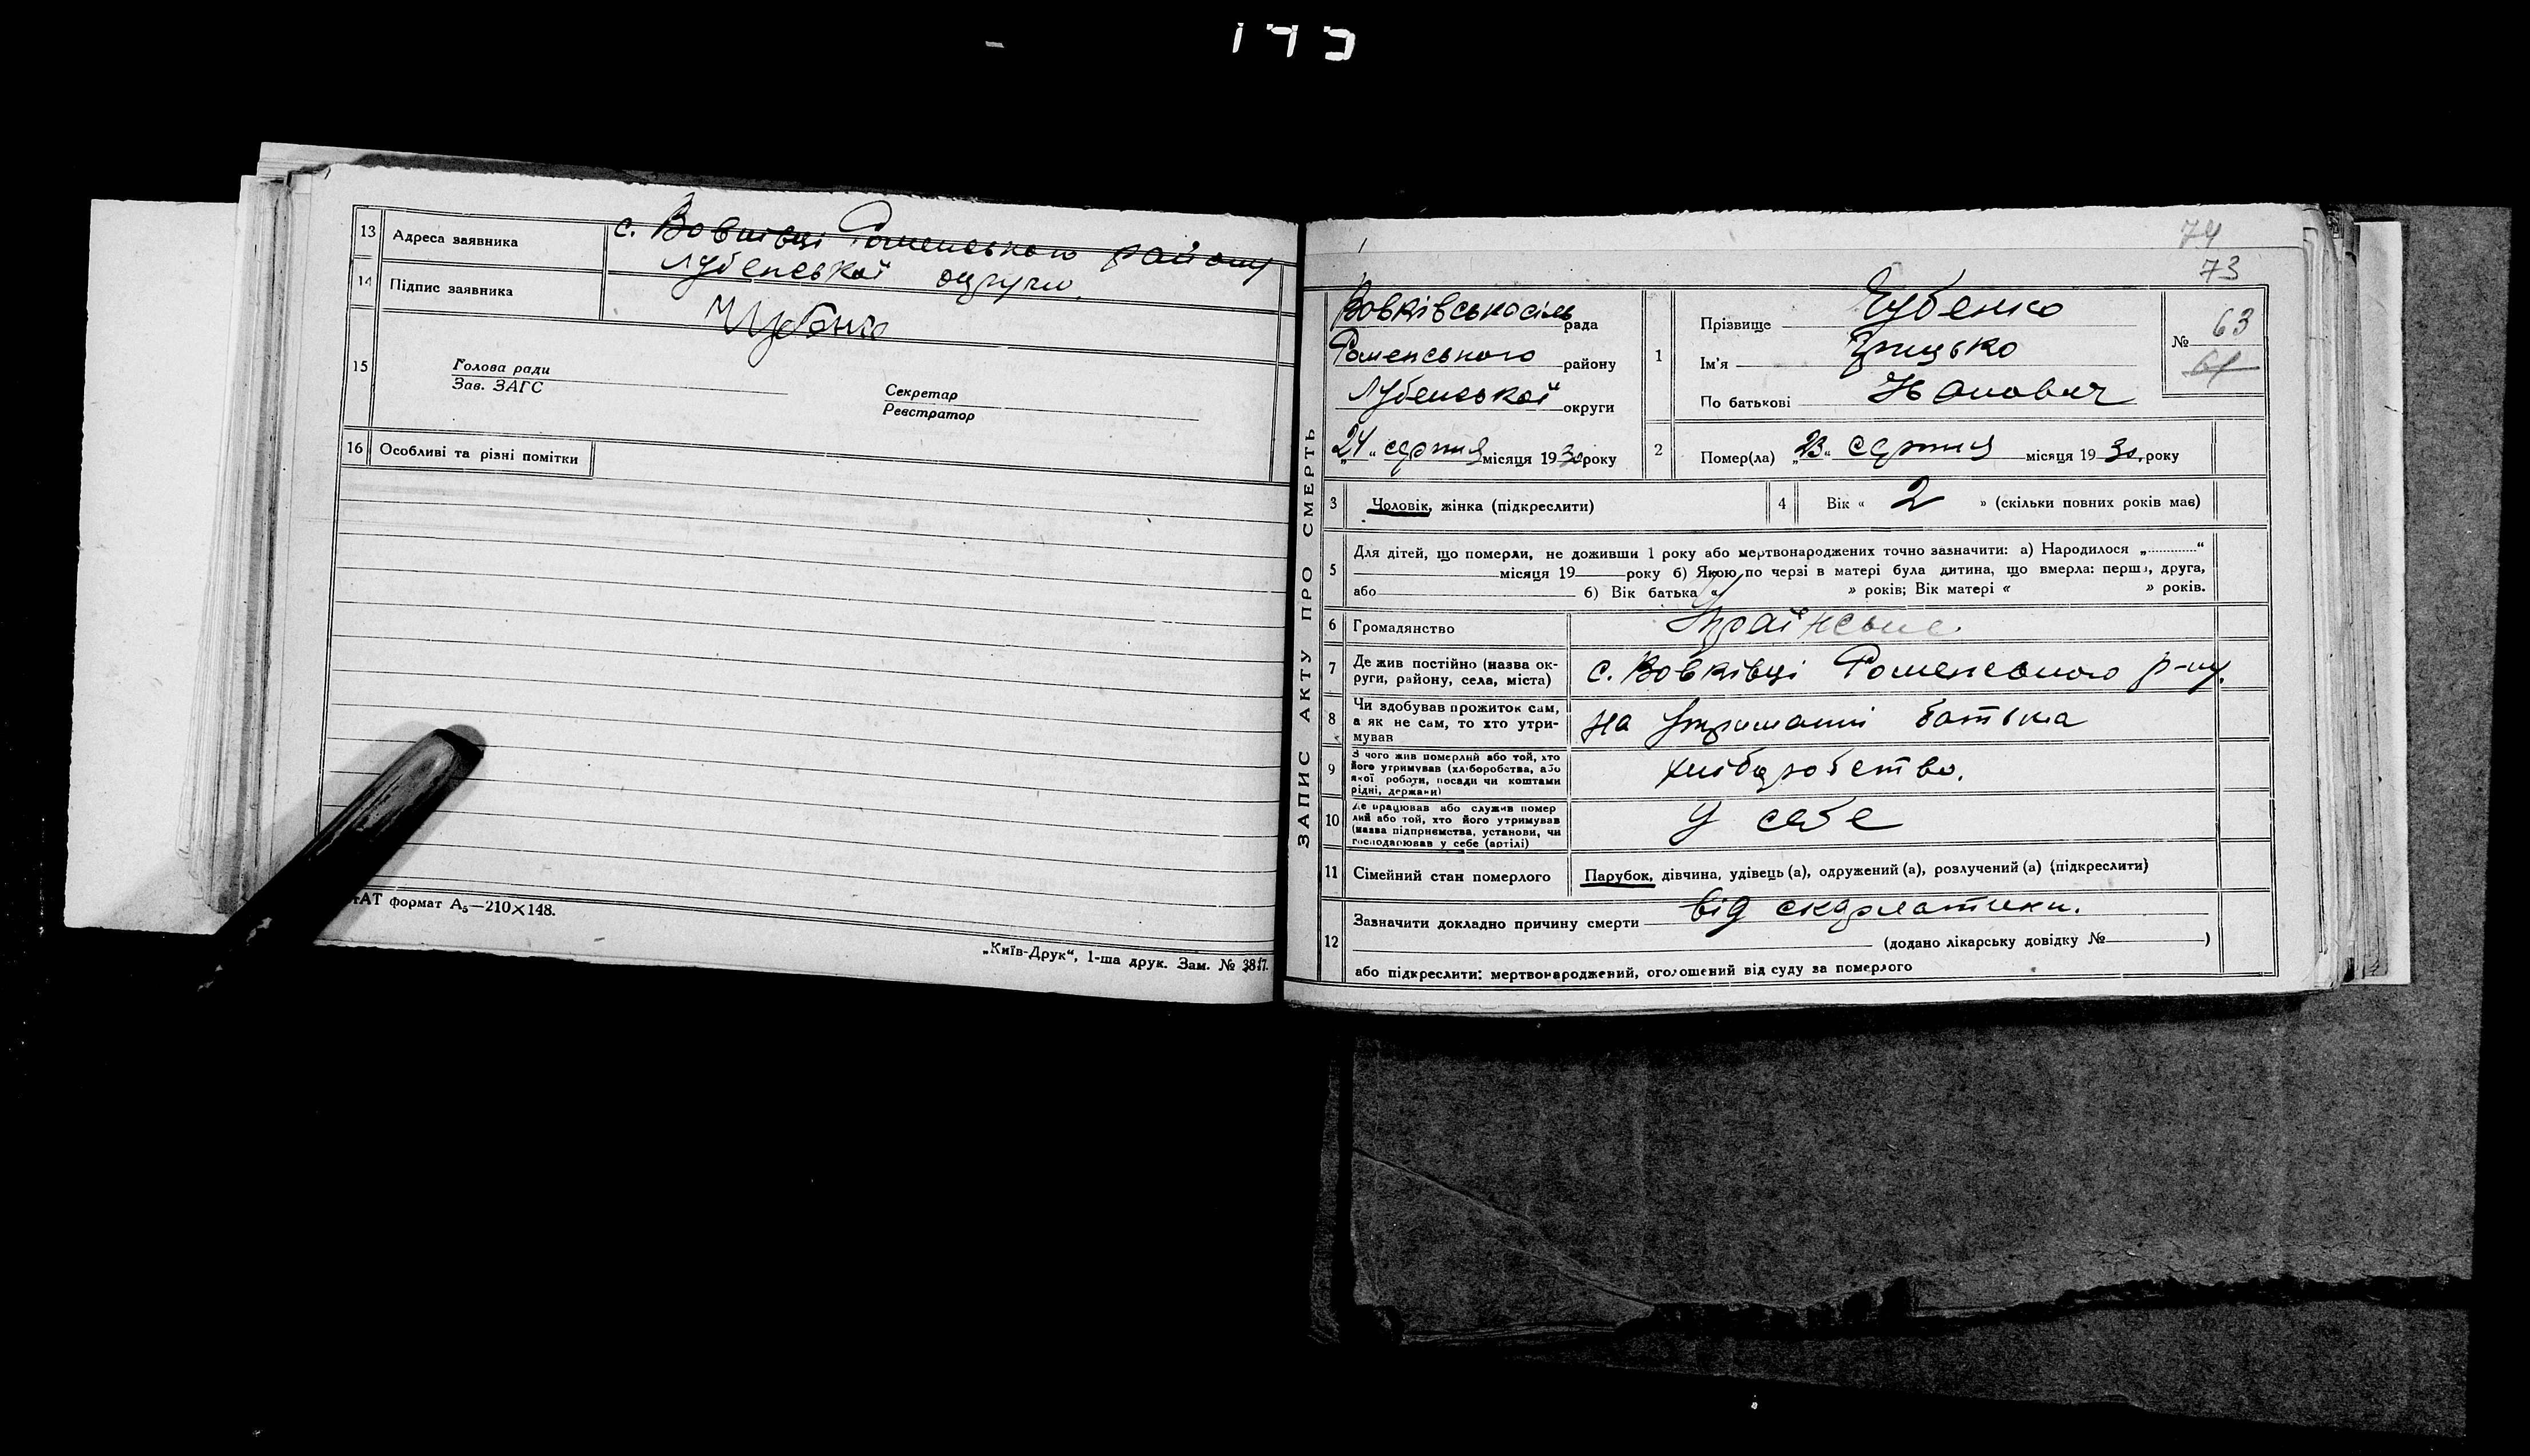 13 Адреса заявника с. Вовківці Роменського району
Лубенської округи.
14 Підпис заявника
15
Голова ради
Зав. ЗАГС
Секретар
Реєстратор
16 Особливі та різні помітки
формат А5—210×148.
„Київ-Друк“, 1-ша друк. Зам. № 3817.
74
73
ЗАПИС АКТУ ПРО СМЕРТЬ
Вовківська сіль рада
Роменського району
Лубенської округи
„24“ серпня місяця 1930 року
1 Прізвище Чубенко
Ім'я Грицько
По батькові
№ 63
61
2 Помер(ла) „23“ серпня місяця 1930, року
3 Чоловік, жінка (підкреслити)
4 Вік « 2 » (скільки повних років має)
5 Для дітей, що померли, не доживши 1 року або мертвонароджених точно зазначити: а) Народилося „............“
місяця 19 року б) Якою по черзі в матері була дитина, що вмерла: перша, друга,
або б) Вік батька « » років; Вік матері « » років.
6 Громадянство Українське.
7 Де жив постійно (назва ок-
руги, району, села, міста) с. Вовківці Роменського р-ну.
8 Чи здобував прожиток сам,
а як не сам, то хто утри-
мував на утриманні батька
9 З чого жив померлий або той, хто
його утримував (хліборобства, або
якої роботи, посади чи коштами
рідні, держави) хліборобство.
10 Де працював або служив помер
лий або той, хто його утримував
(назва підприємства, установи, чи
господарював у себе (артілі) У себе
11 Сімейний стан померлого Парубок, дівчина, удівець (а), одружений (а), розлучений (а) (підкреслити)
12 Зазначити докладно причину смерти від скарлатини.
(додано лікарську довідку № )
або підкреслити: мертвонароджений, оголошений від суду за померлого